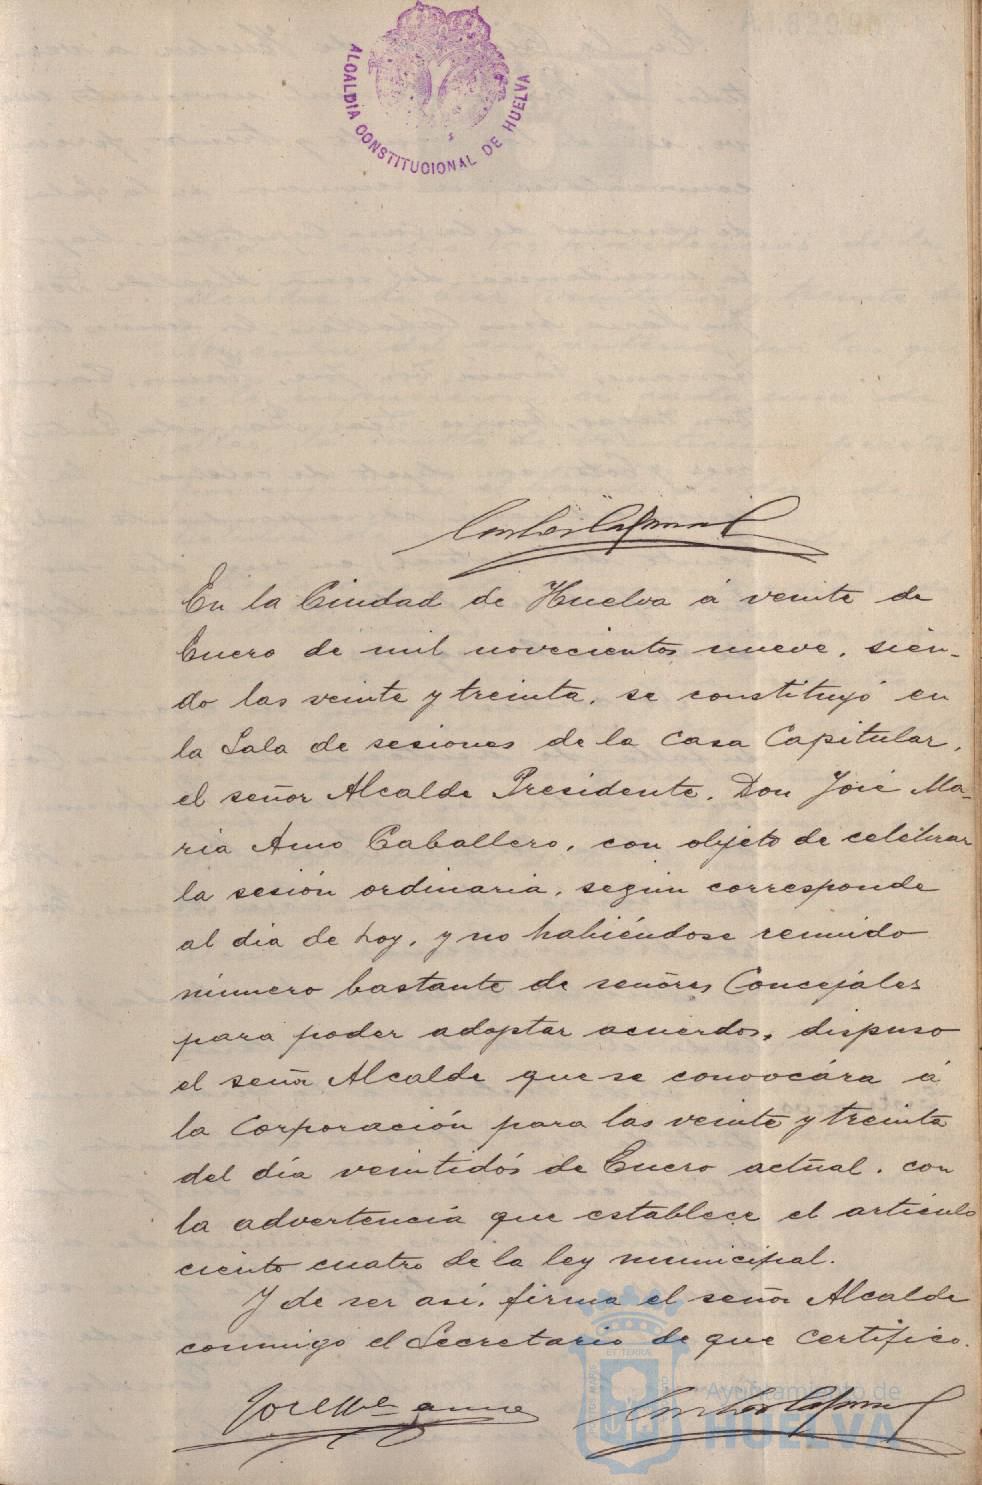 ALCALDIA CONSTITUCIONAL DE HUELVA
En la Ciudad de Huelva á veinte de
Enero de mil novecientos nueve, sien-
do las veinte y treinta, se constituyó en
la Sala de sesiones de la Casa Capitular,
el señor Alcalde Presidente, Don José Ma-
ria Amo Caballero, con objeto de celebrar
la sesión ordinaria, según corresponde
al dia de hoy, y no habiéndose reunido
número bastante de señores Concejales
para poder adoptar acuerdos, dispuso
el señor Alcalde que se convocára á
la Corporación para las veinte y treinta
del día veintidós de Enero actual, con
la advertencia que establece el artículo
ciento cuatro de la ley municipal.
Y de ser así, firma el señor Alcalde
conmigo el Secretario de que certifico.
José Mª Amo
ET TERRA
Ayuntamiento de
HUELVA